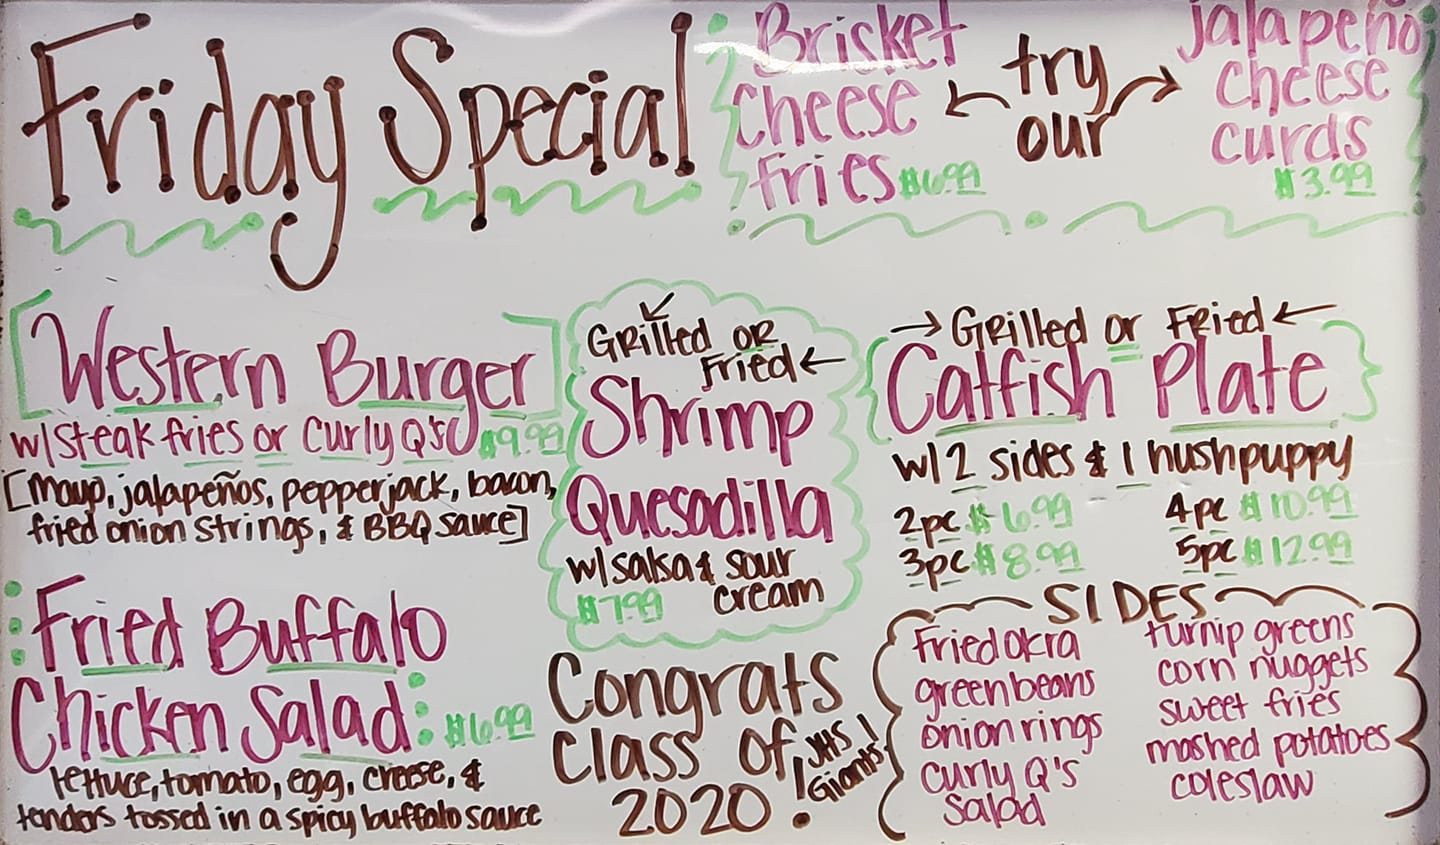 Friday Special
Brisket
Cheese
Fries $6.99
try
our
jalapeño
cheese
curds
$3.99
Western Burger
w/steak fries or Curly Q's $9.99
[mayo, jalapeños, pepperjack, bacon,
fried onion strings, & BBQ sauce]
Fried Buffalo
Chicken Salad $6.99
lettuce, tomato, egg, cheese, &
tenders tossed in a spicy buffalo sauce
Grilled or
Fried
Shrimp
Quesadilla
w/salsa & sour
$7.99 cream
Congrats
class of
2020!
JHS
Giants!
Grilled or Fried
Catfish Plate
w/ 2 sides & 1 hushpuppy
2pc $6.99 4pc $10.99
3pc $8.99 5pc $12.99
SIDES
Fried okra
green beans
onion rings
curly Q's
Salad
turnip greens
corn nuggets
sweet fries
mashed potatoes
coleslaw